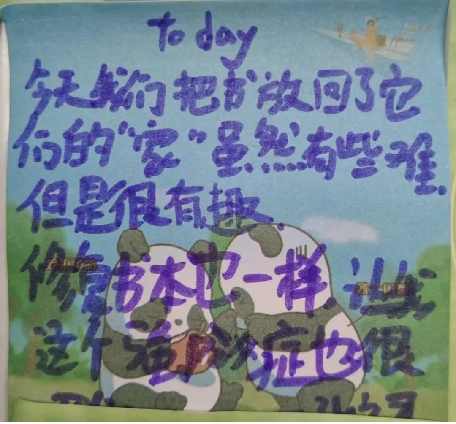 today
今天我们把书放回了它
们的“家”虽然有些难
但是很有趣.
修复书本也一样,让我
这个强迫症也很